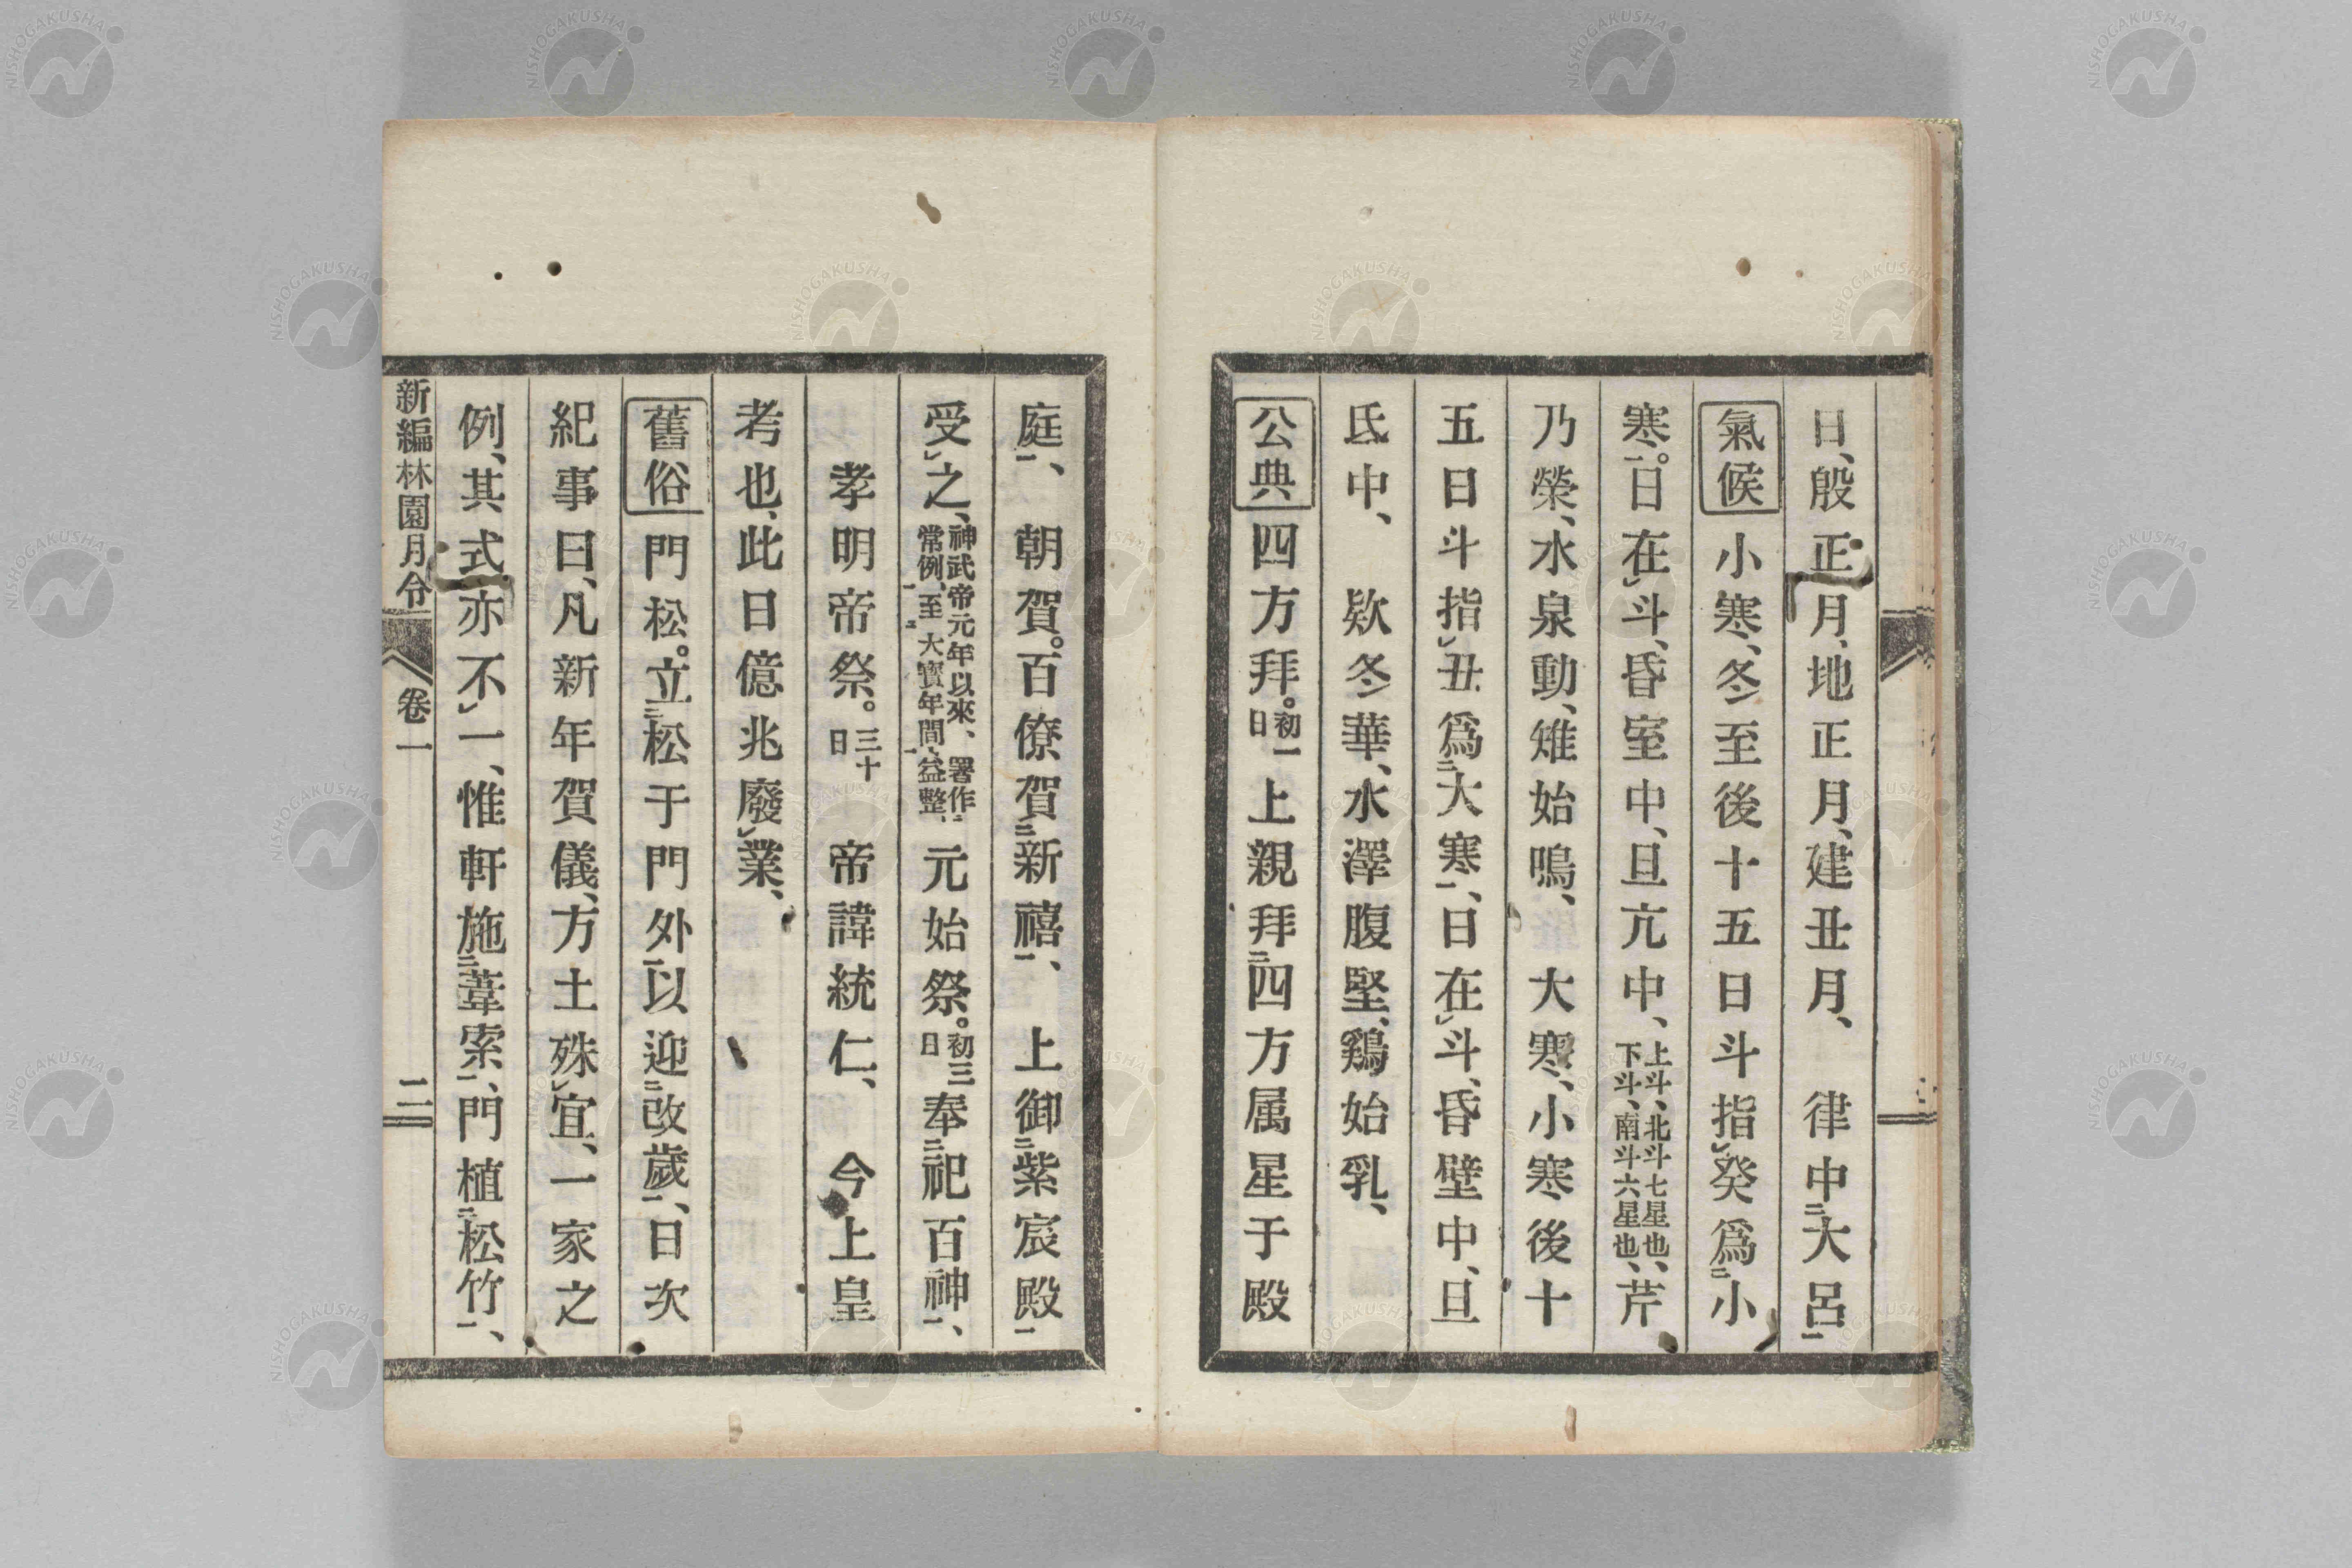 日、殷正月、地正月、建丑月、　律中㆓大呂㆒
氣候　小寒、冬至後十五日斗指㆑癸爲㆓小
寒㆒。日在㆑斗、昏室中、旦亢中、上斗、北斗七星也、下斗、南斗六星也、芹
乃榮、水泉動、雉始鳴、　大寒、小寒後十
五日斗指㆑丑爲㆓大寒㆒、日在㆑斗、昏壁中、旦
氐中、　欵冬華、水澤腹堅、鶏始乳、
公典　四方拜。初一日　上親拜㆓四方属星于殿
庭㆒、　朝賀。百僚賀㆓新禧㆒、　上御㆓紫宸殿㆒
受㆑之、神武帝元年以來、畧作㆓常例㆒、至㆓大寳年間㆒、益整、　元始祭。初三日　奉㆓祀百神㆒、
孝明帝祭。三十日　帝諱統仁、　今上皇
考也、此日億兆廢㆑業、
舊俗　門松。立㆓松于門外㆒以迎㆓改歲㆒、日次
紀事曰、凡新年賀儀、方土殊㆑宜、一家之
例、其式亦不㆑一、惟軒施㆓葦索㆒、門植㆓松竹㆒、
新編林園月令　卷一　二
NISHOGAKUSHA